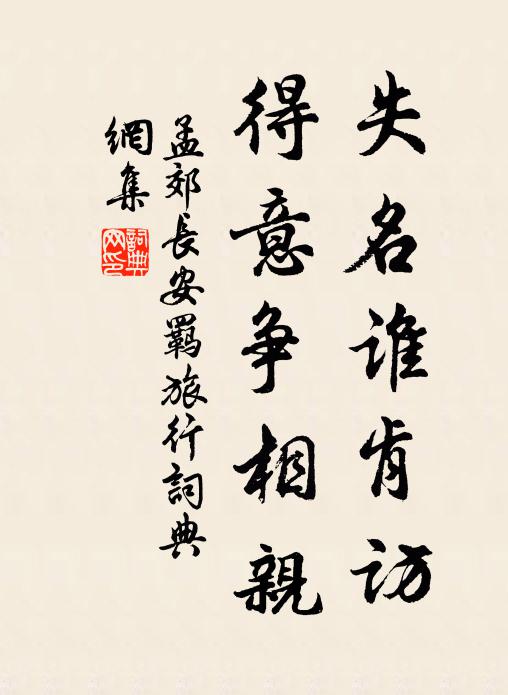 失名谁肯访
得意争相親
孟郊長安羈旅行詞典
網集
詞典
网印